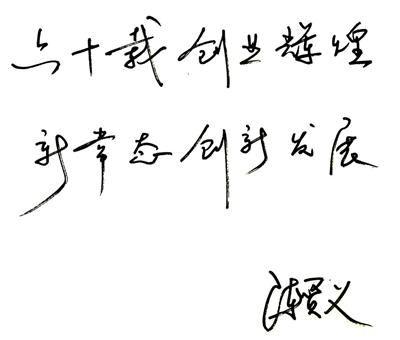 六十载创业辉煌
新常态创新发展
陈贤义